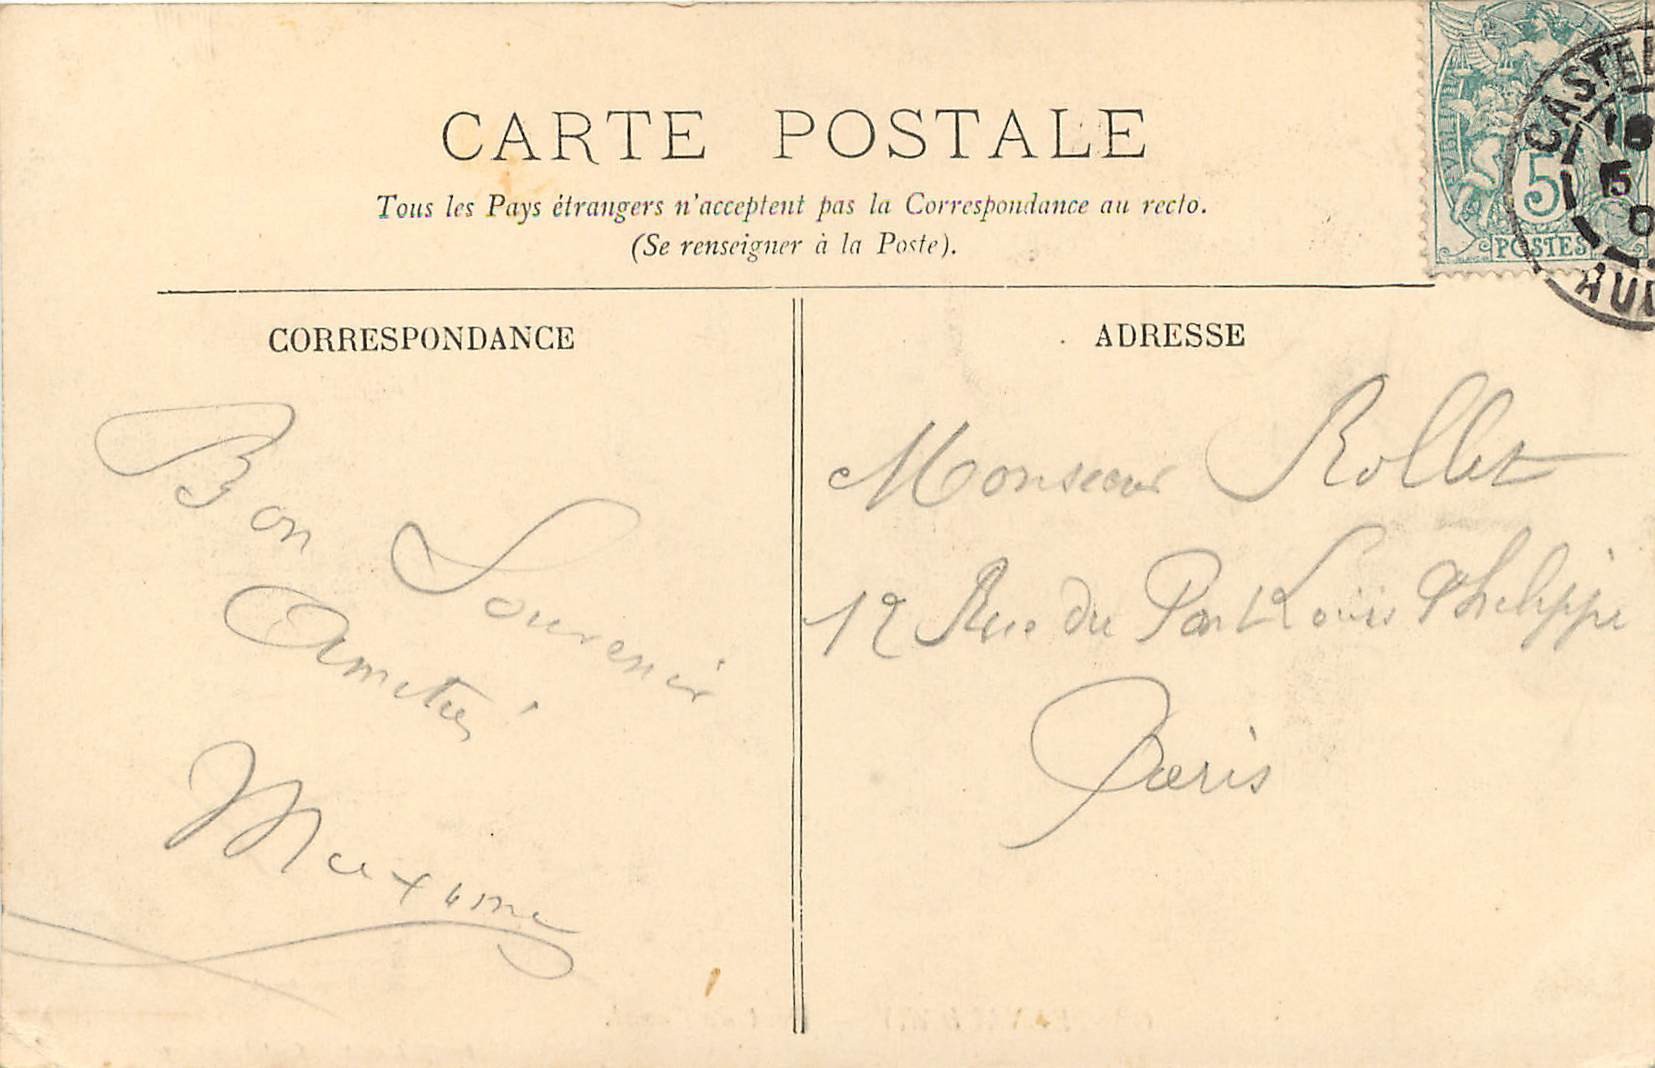 CARTE POSTALE
Tous les Pays étrangers n'acceptent pas la Correspondance au recto.
(Se renseigner à la Poste).
CORRESPONDANCE
Bon Souvenir
Amitié
Maxime
ADRESSE
Monsieur Rollet
12 Rue du Pont Louis Philippe
Paris
5
POSTES
CASTEL
AUD